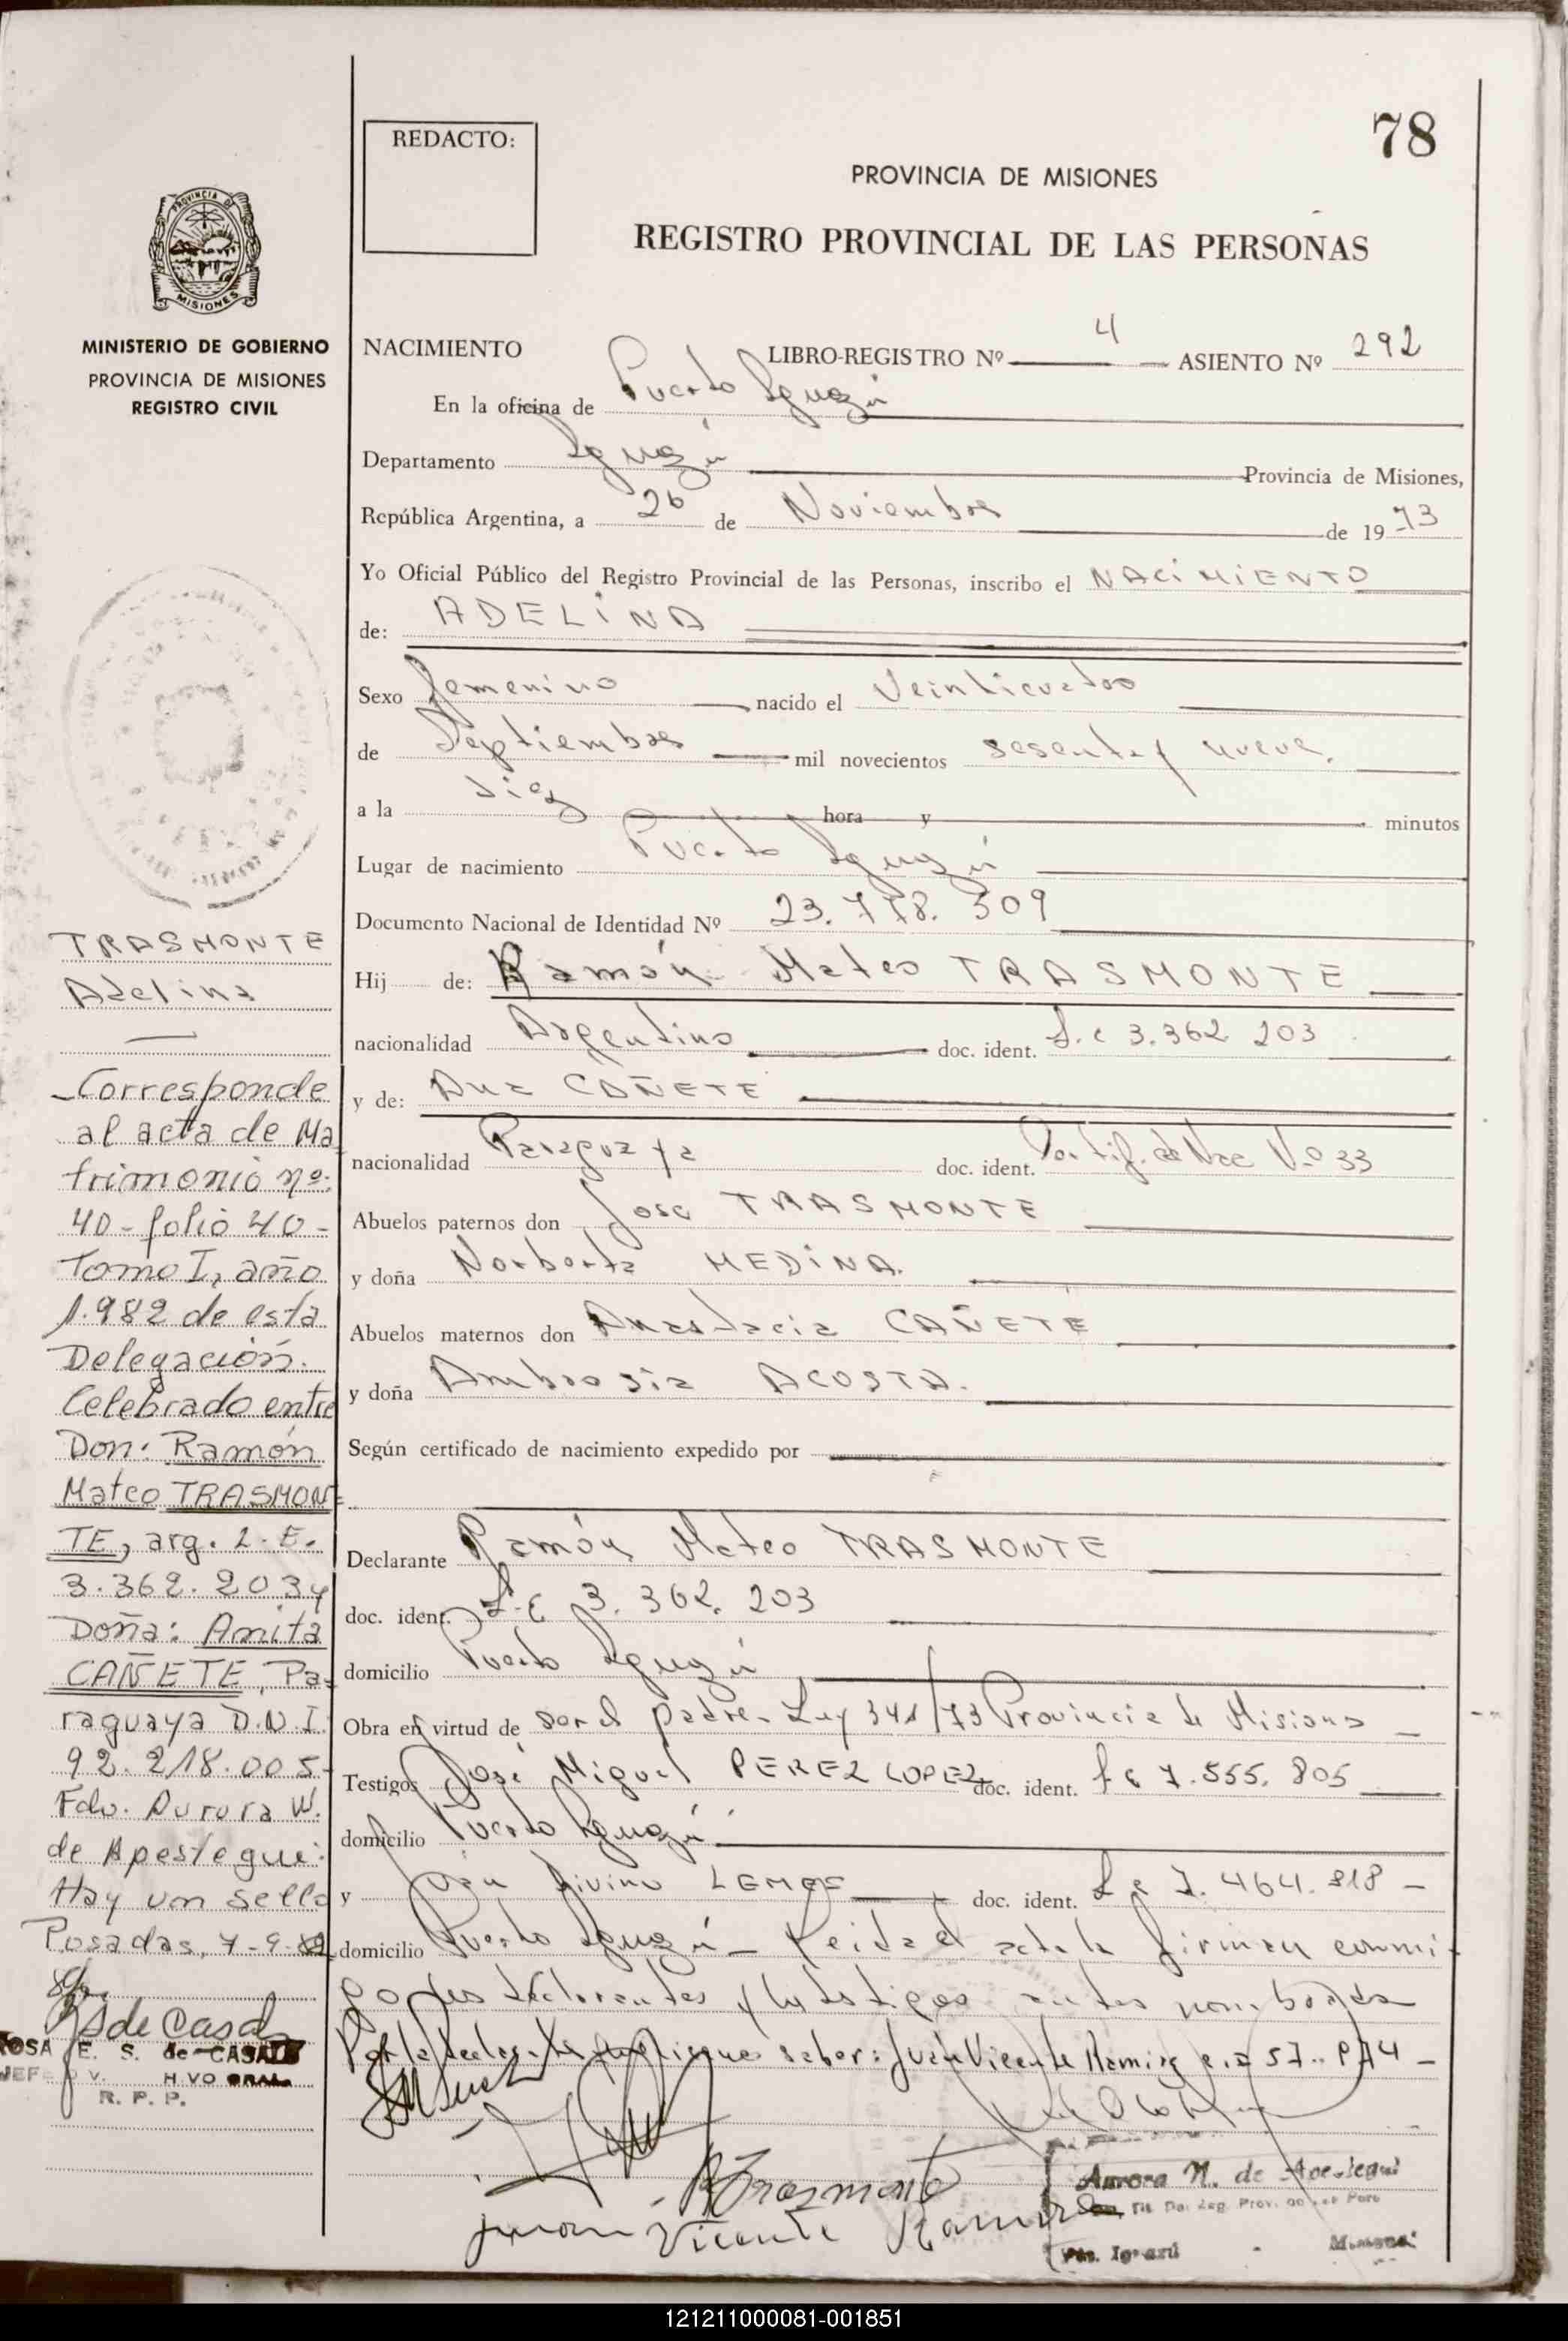 78
REDACTO:
PROVINCIA DE MISIONES
REGISTRO PROVINCIAL DE LAS PERSONAS
PROVINCIA DE
MISIONES
MINISTERIO DE GOBIERNO
PROVINCIA DE MISIONES
REGISTRO CIVIL
NACIMIENTO LIBRO-REGISTRO Nº 4 ASIENTO Nº 292
En la oficina de Puerto Iguazú
Departamento Iguazú Provincia de Misiones,
República Argentina, a 26 de Noviembre de 1973
Yo Oficial Público del Registro Provincial de las Personas, inscribo el NACIMIENTO
de: ADELINA
Sexo femenino nacido el Veinticuatro
de Septiembre mil novecientos sesenta y nueve.
a la diez hora y minutos
Lugar de nacimiento Puerto Iguazú
Documento Nacional de Identidad Nº 23.778.309
Hij de: Ramón Mateo TRASMONTE
nacionalidad Argentino doc. ident. L.E 3.362.203
y de: Ana CAÑETE
nacionalidad Paraguaya doc. ident. Certif. de Nac Nº 33
Abuelos paternos don José TRASMONTE
y doña Norberta MEDINA.
Abuelos maternos don Anastacia CAÑETE
y doña Ambrosia ACOSTA.
Según certificado de nacimiento expedido por
Declarante Ramón Mateo TRASMONTE
doc. ident. L.E 3.362.203
domicilio Puerto Iguazú
Obra en virtud de ser el padre. Ley 341/73 Provincia de Misiones
Testigos José Miguel PEREZ LOPEZ doc. ident. L E 7.555.805
domicilio Puerto Iguazú
y Juan Divino LEMOS doc. ident. L E 7.464.818
domicilio Puerto Iguazú Leida el acta la firman conmi
go los declarantes y los testigos antes nombrados
saber: Juan Vicente Ramirez
R Trasmonte
Juan Vicente Ramirez
Aurora W. de Apestegui
Pto. Iguazú
TRASMONTE
Adelina
Corresponde
al acta de Ma
trimonio nº:
40-folio 40-
Tomo I, año
1.982 de esta
Delegación.
Celebrado entre
Don: Ramón
Mateo TRASMON=
TE, arg. L.E.
3.362.203 y
Doña: Anita
CAÑETE, Pa-
raguaya D.N.I.
92.218.005-
Fdo. Aurora W.
de Apestegui.
Hay un sello
Posadas, 7-9-82
R S de Casals
ROSA E. S. de CASALS
JEFE
R. P. P.
121211000081-001851